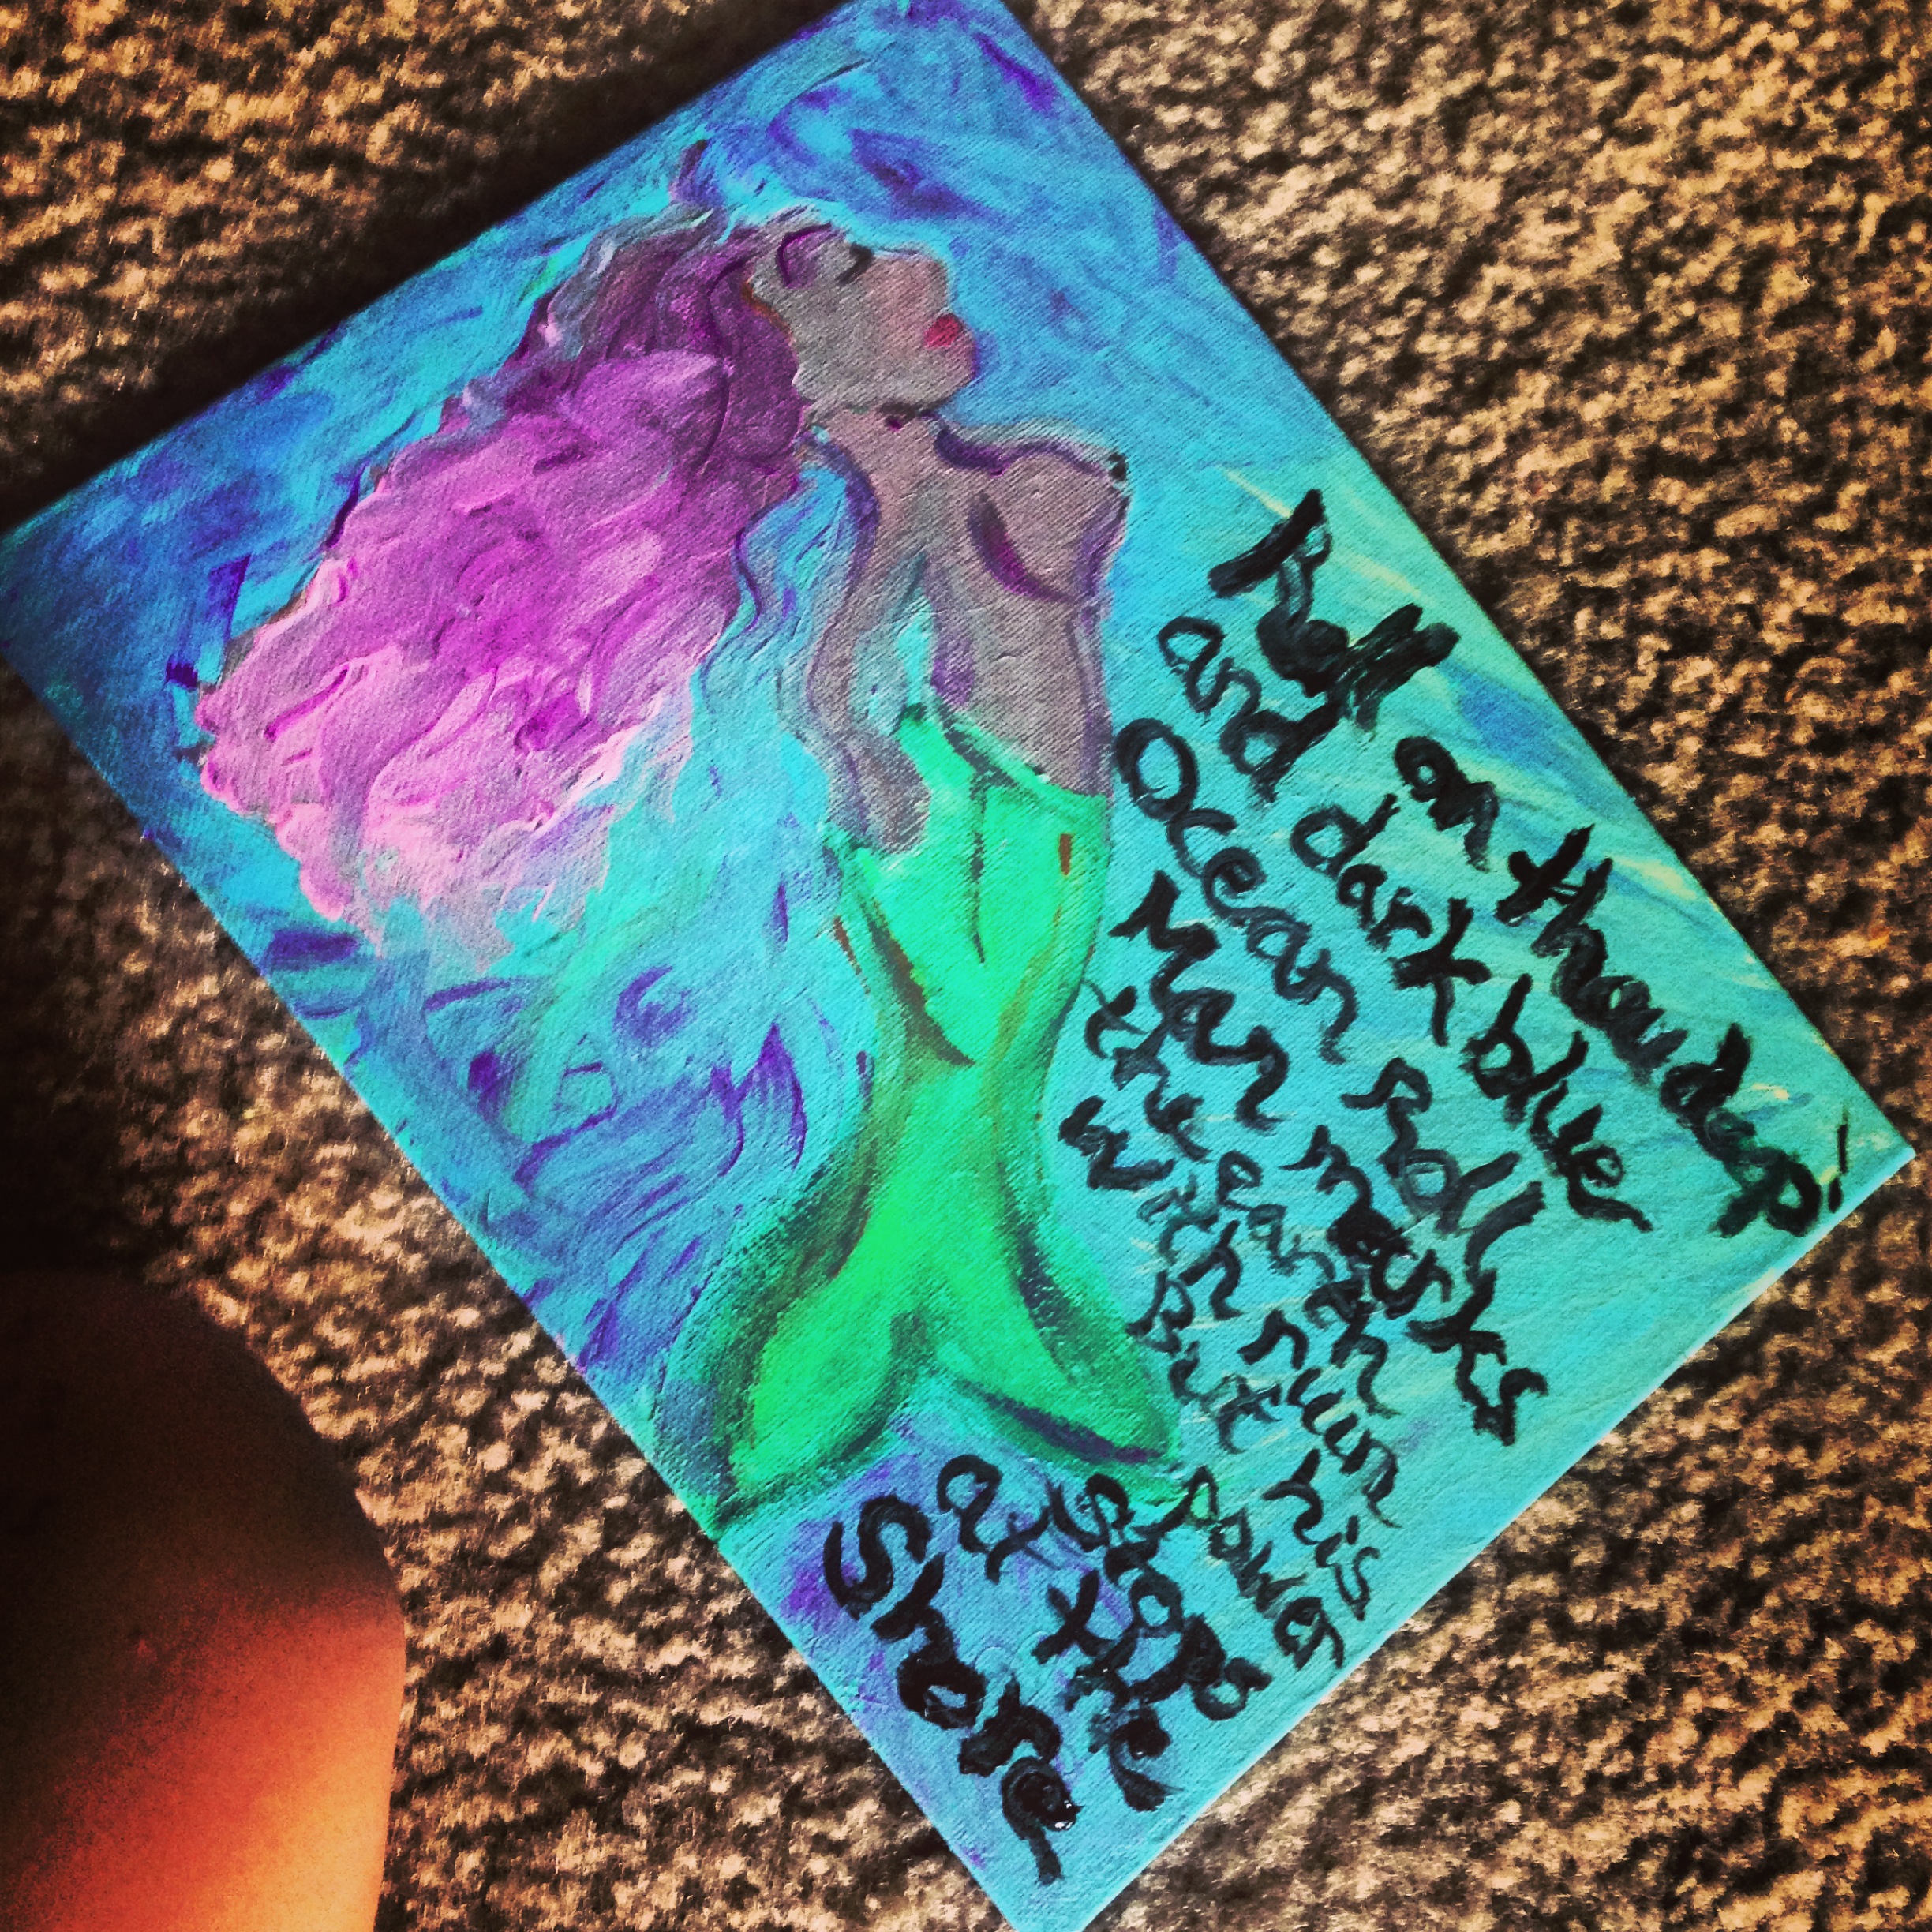 Roll on thou deep!
and dark blue
Ocean roll
Man masks
the earth
with ruin
But his
Power
stops
at the
Shore